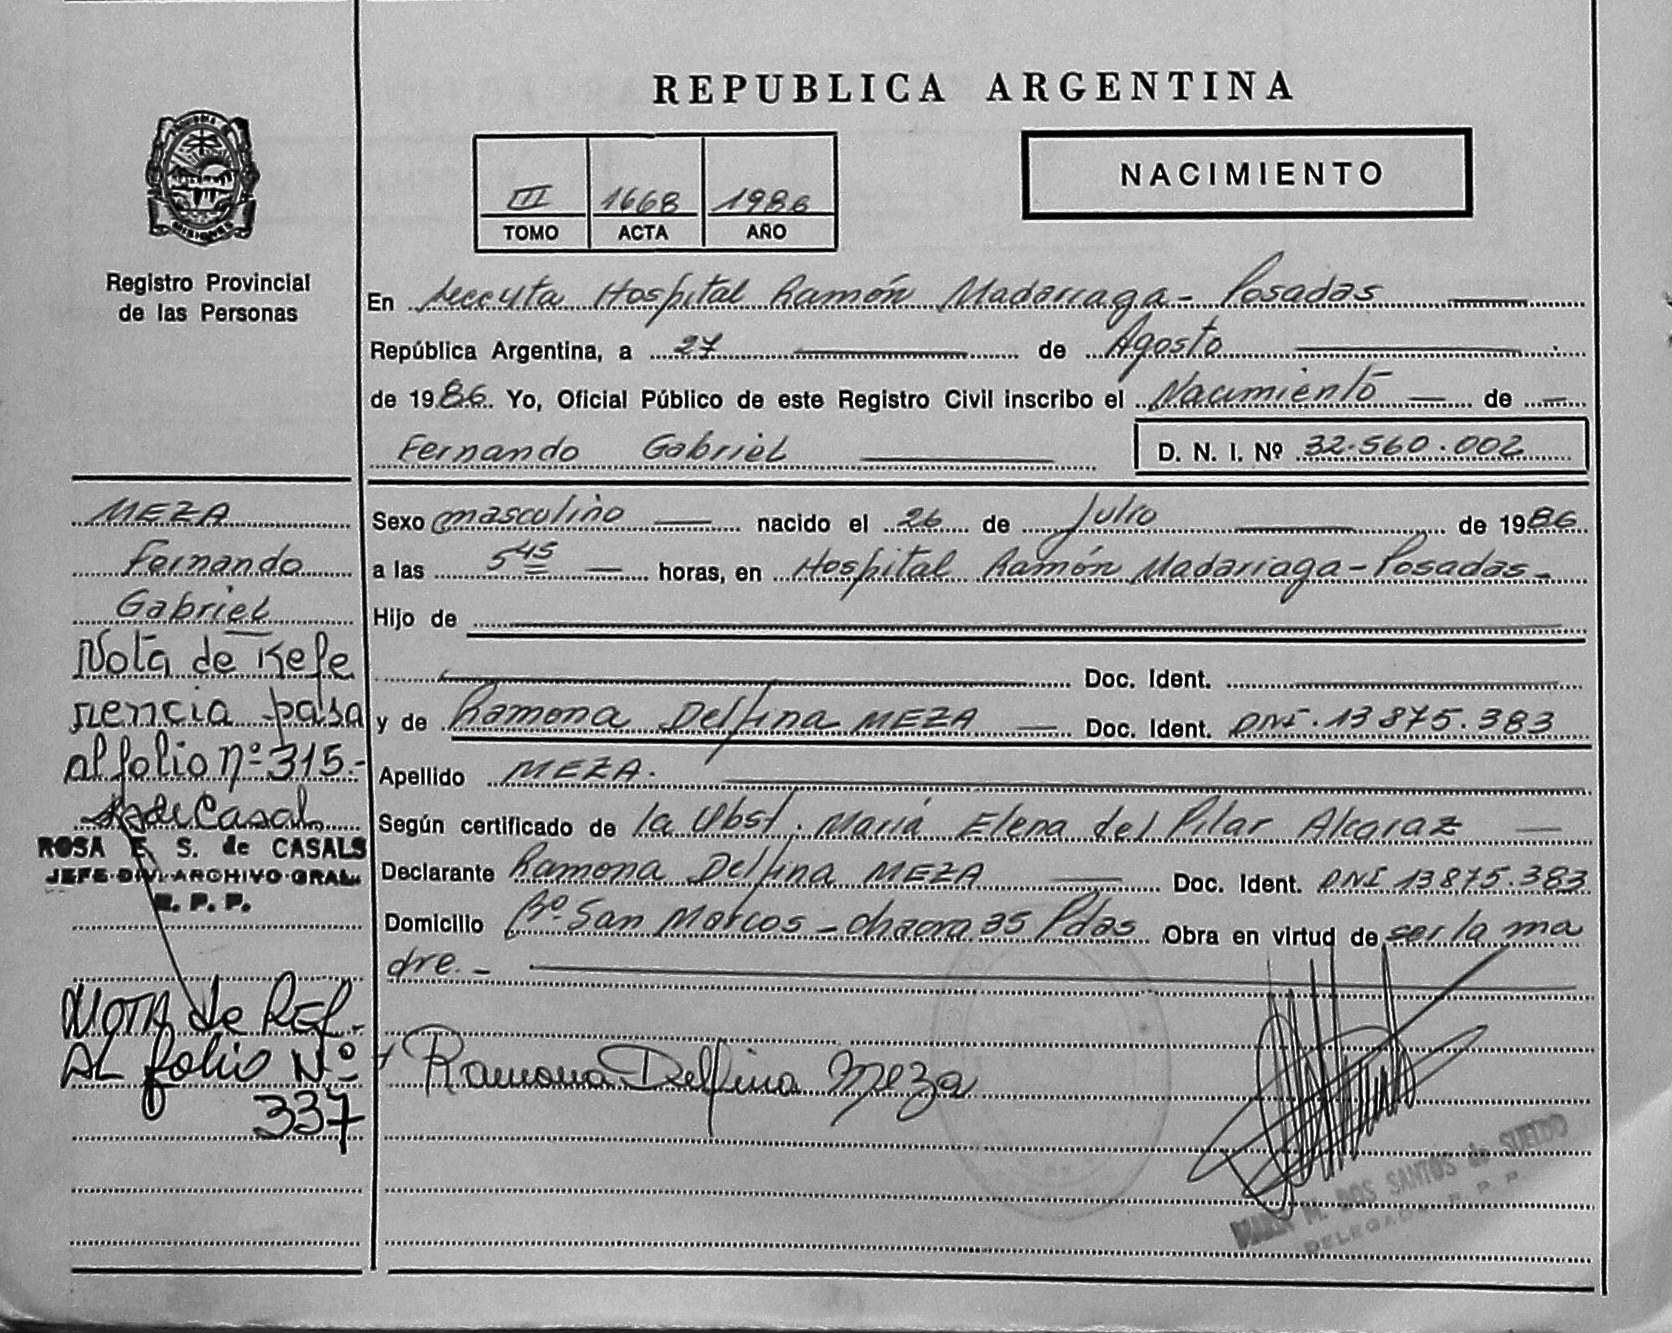 REPUBLICA ARGENTINA
NACIMIENTO
III 1668 1986
TOMO ACTA AÑO
MISIONES
Registro Provincial
de las Personas
En Seccita Hospital Ramón Madariaga - Posadas
República Argentina, a 27 de Agosto
de 1986. Yo, Oficial Público de este Registro Civil inscribo el Nacimiento de
Fernando Gabriel D. N. I. Nº 32.560.002
MEZA
Fernando
Gabriel
Nota de Refe
rencia pasa
al folio nº 315.-
R de Casals
ROSA E. S. de CASALS
JEFE DIV. ARCHIVO GRAL.
R. P. P.
NOTA de REF.
AL folio Nº
337
Sexo masculino nacido el 26 de Julio de 1986
a las 5 45 horas, en Hospital Ramón Madariaga - Posadas -
Hijo de
Doc. Ident.
y de Ramona Delfina MEZA Doc. Ident. DNI. 13875.383
Apellido MEZA.
Según certificado de la Obst. María Elena del Pilar Alcaraz
Declarante Ramona Delfina MEZA Doc. Ident. DNI 13875.383
Domicilio Bº San Marcos - chacra 35 Pdas Obra en virtud de ser la ma
dre. -
Ramona Delfina Meza
MARIA M. DOS SANTOS de SUELDO
DELEGADA R. P. P.